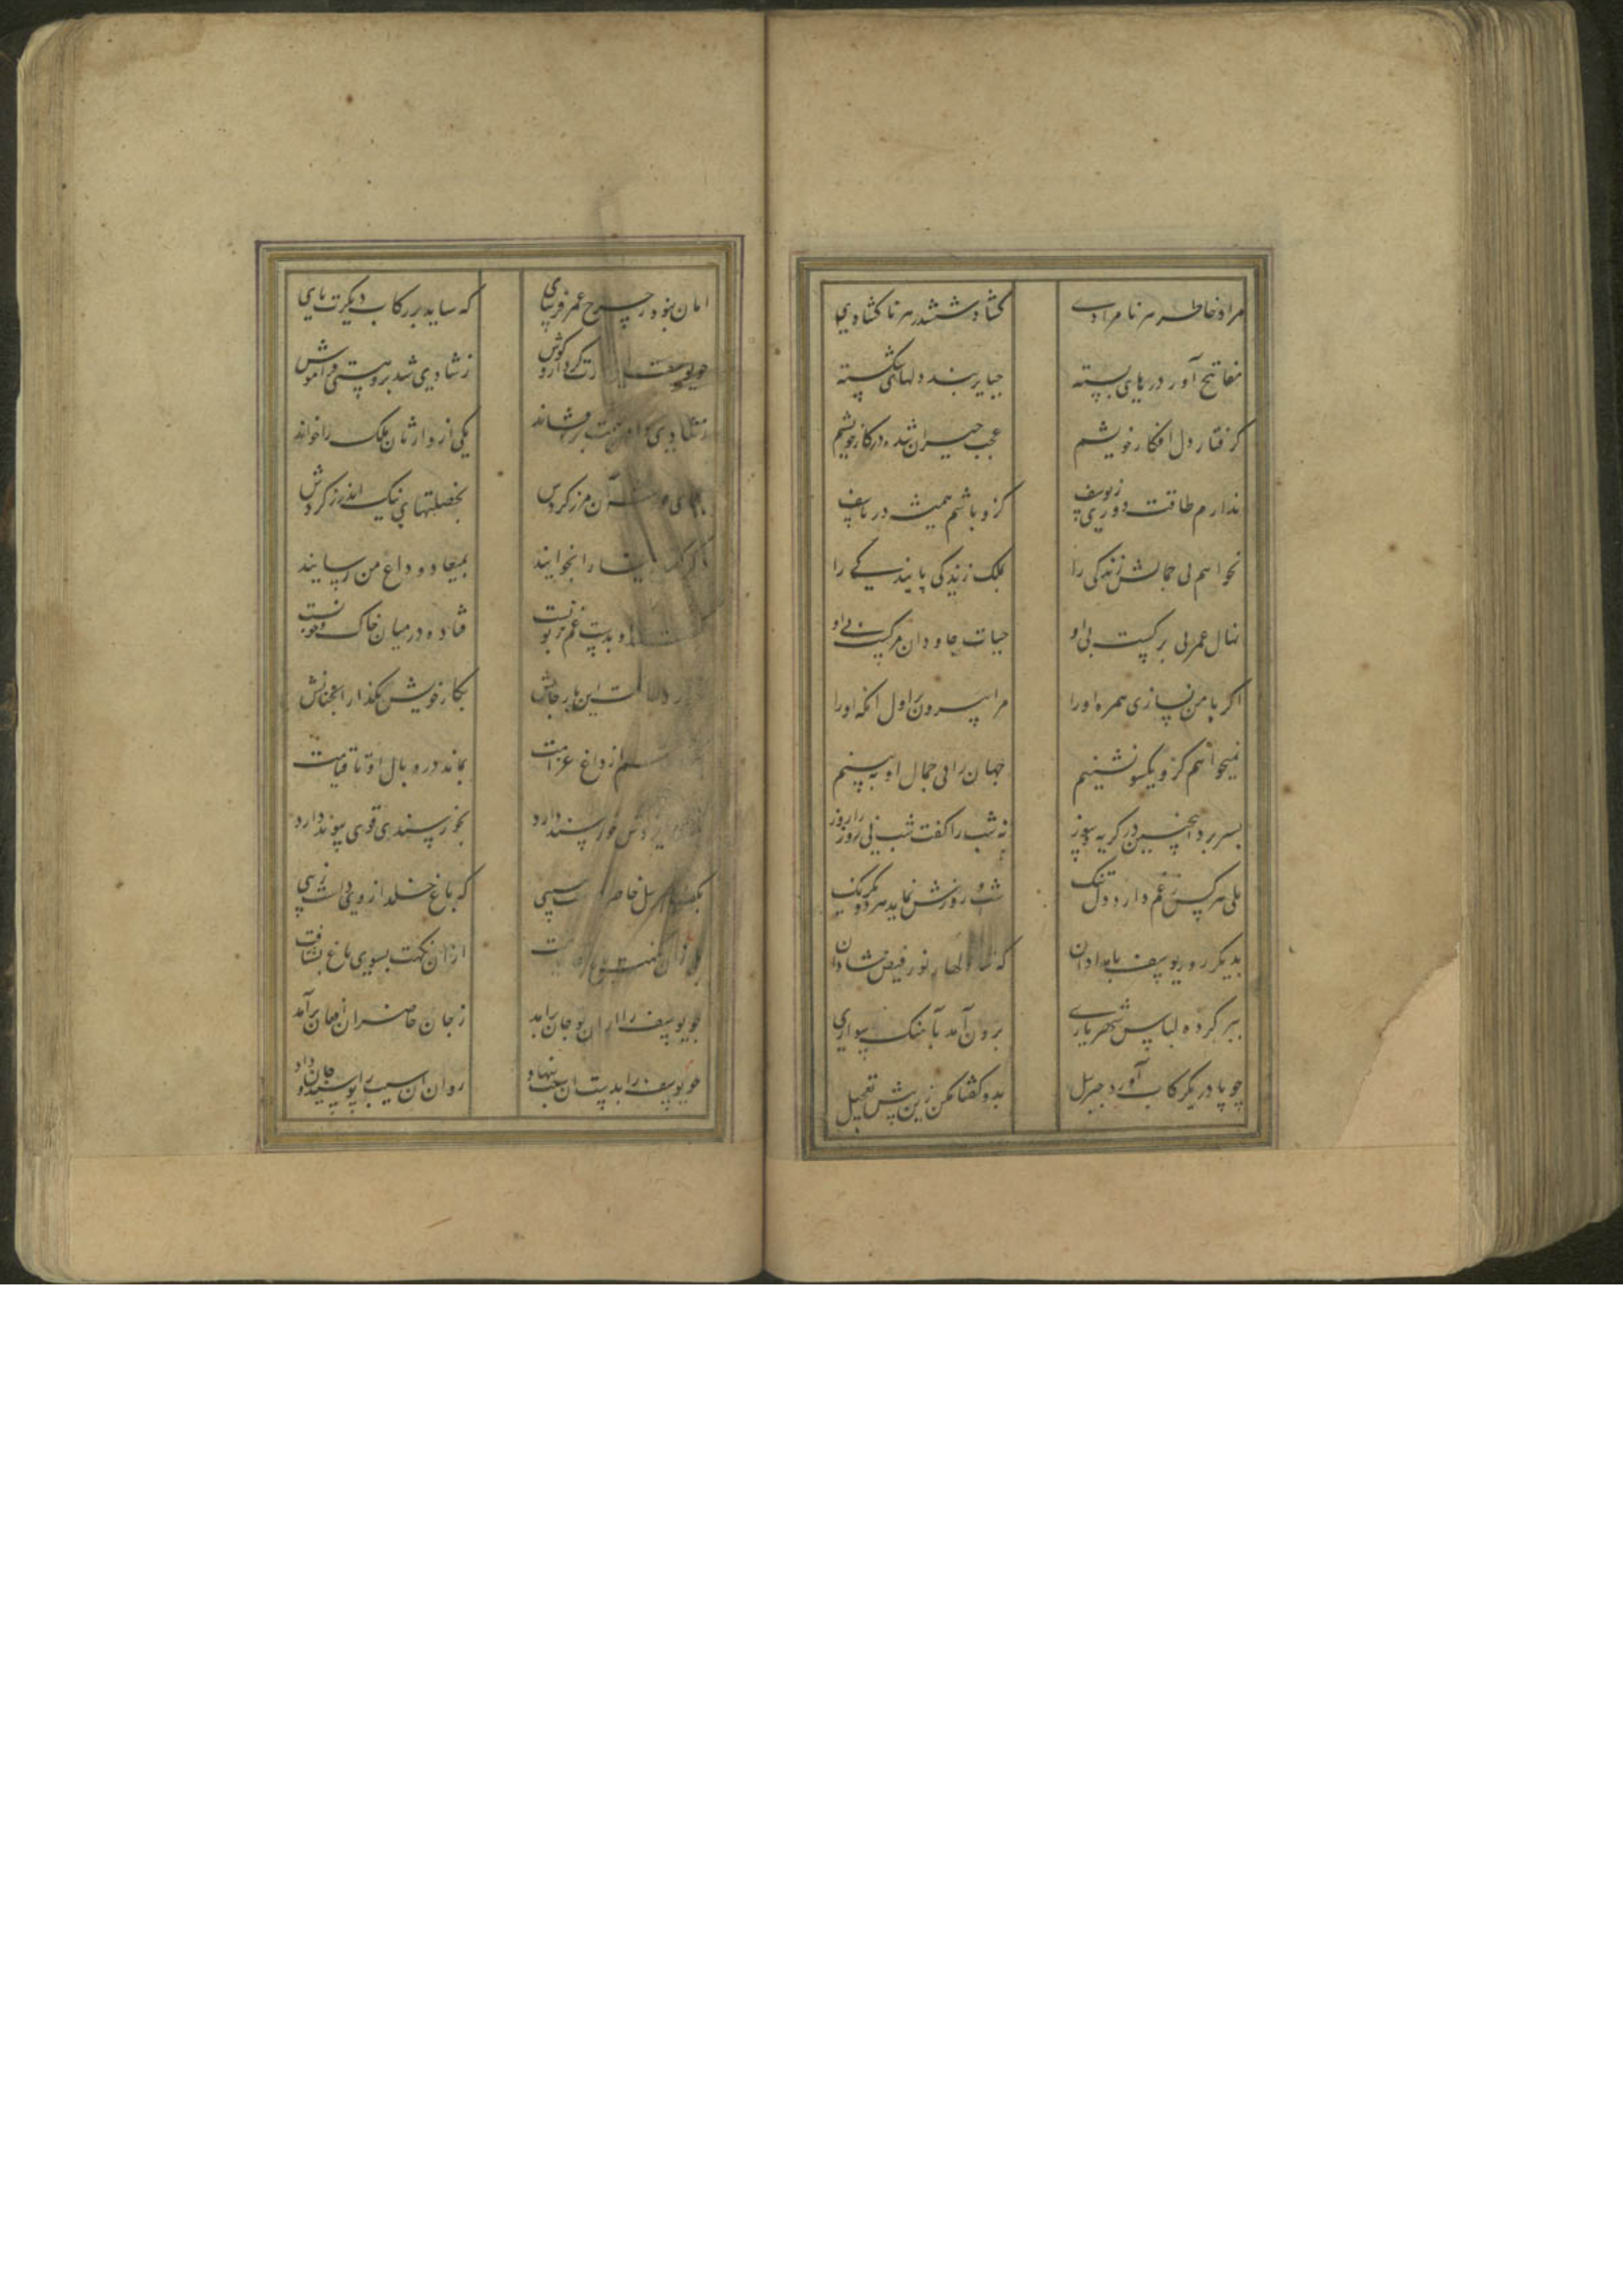 مراد خاطر هر نامرادی
کشاد ششدر هر ناکشادی
مفاتیح آور درهای بسته
جبایر بند دلهای شکسته
کرفتار دل افکار خویشم
عجب حیران شده در کار خویشم
ندارم طاقت دوری ز یوسف
کزو باشم همیشه در تاسف
نخواهم بی جمالش زندکی را
بملک زندکی پایندکی را
نهال عمر بی برکیست بی او
حیات جاودان مرکیست بی او
اکر با من نسازی همره او را
مرا بیرون بر اول انکه او را
نمیخواهم کزو یکسو نشینم
جهان را بی جمال او به بینم
بسر برد اینچنین در کریه و سوز
نه شب را کفت شب نی روز را روز
بلی هر کس ز غم دارد دل تنک
شب و روزش نماید هر دو یکرنک
بدیکر روز یوسف بامدادان
که شد دلها ز نور فیض شادان
ببر کرده لباس شهریاری
برون آمد بآهنک سواری
چو پا در یکرکاب آورد جبریل
بدو کفتا مکن زین بیش تعجیل
امان نبود ز چرخ عمر فرسای
که ساید بر رکاب دیکرت پای
چو یوسف این بشارت کرد ازو کوش
ز شادی شد برو هستی فراموش
ز شادی دامن همت برافشاند
یکی از وارثان ملک را خواند
بجای خود شه آن مرز کردش
بخصلتهای نیک اندرز کردش
دکر کفتا زلیخا را بخوانید
بمیعاد وداع من رسانید
او بدست غم زبونست
فتاده در میان خاک و خونست
این بار جانش
بکار خویش بکذار انچنانش
از داغ غرامت
بماند در دو بال او تا قیامت
خورسند دارد
بخورسندی قوی پیوند دارد
بکف جبریل حاضر داشت سیبی
که باغ خلد از وی داشت زیبی
ازان نکهت بسوی باغ بشتافت
چو یوسف را ازان بو جان برامد
ز جان حاضران افغان برآمد
چو یوسف را بدست ان سیب بنهاد
روان ان سیب را بوسید و جان داد